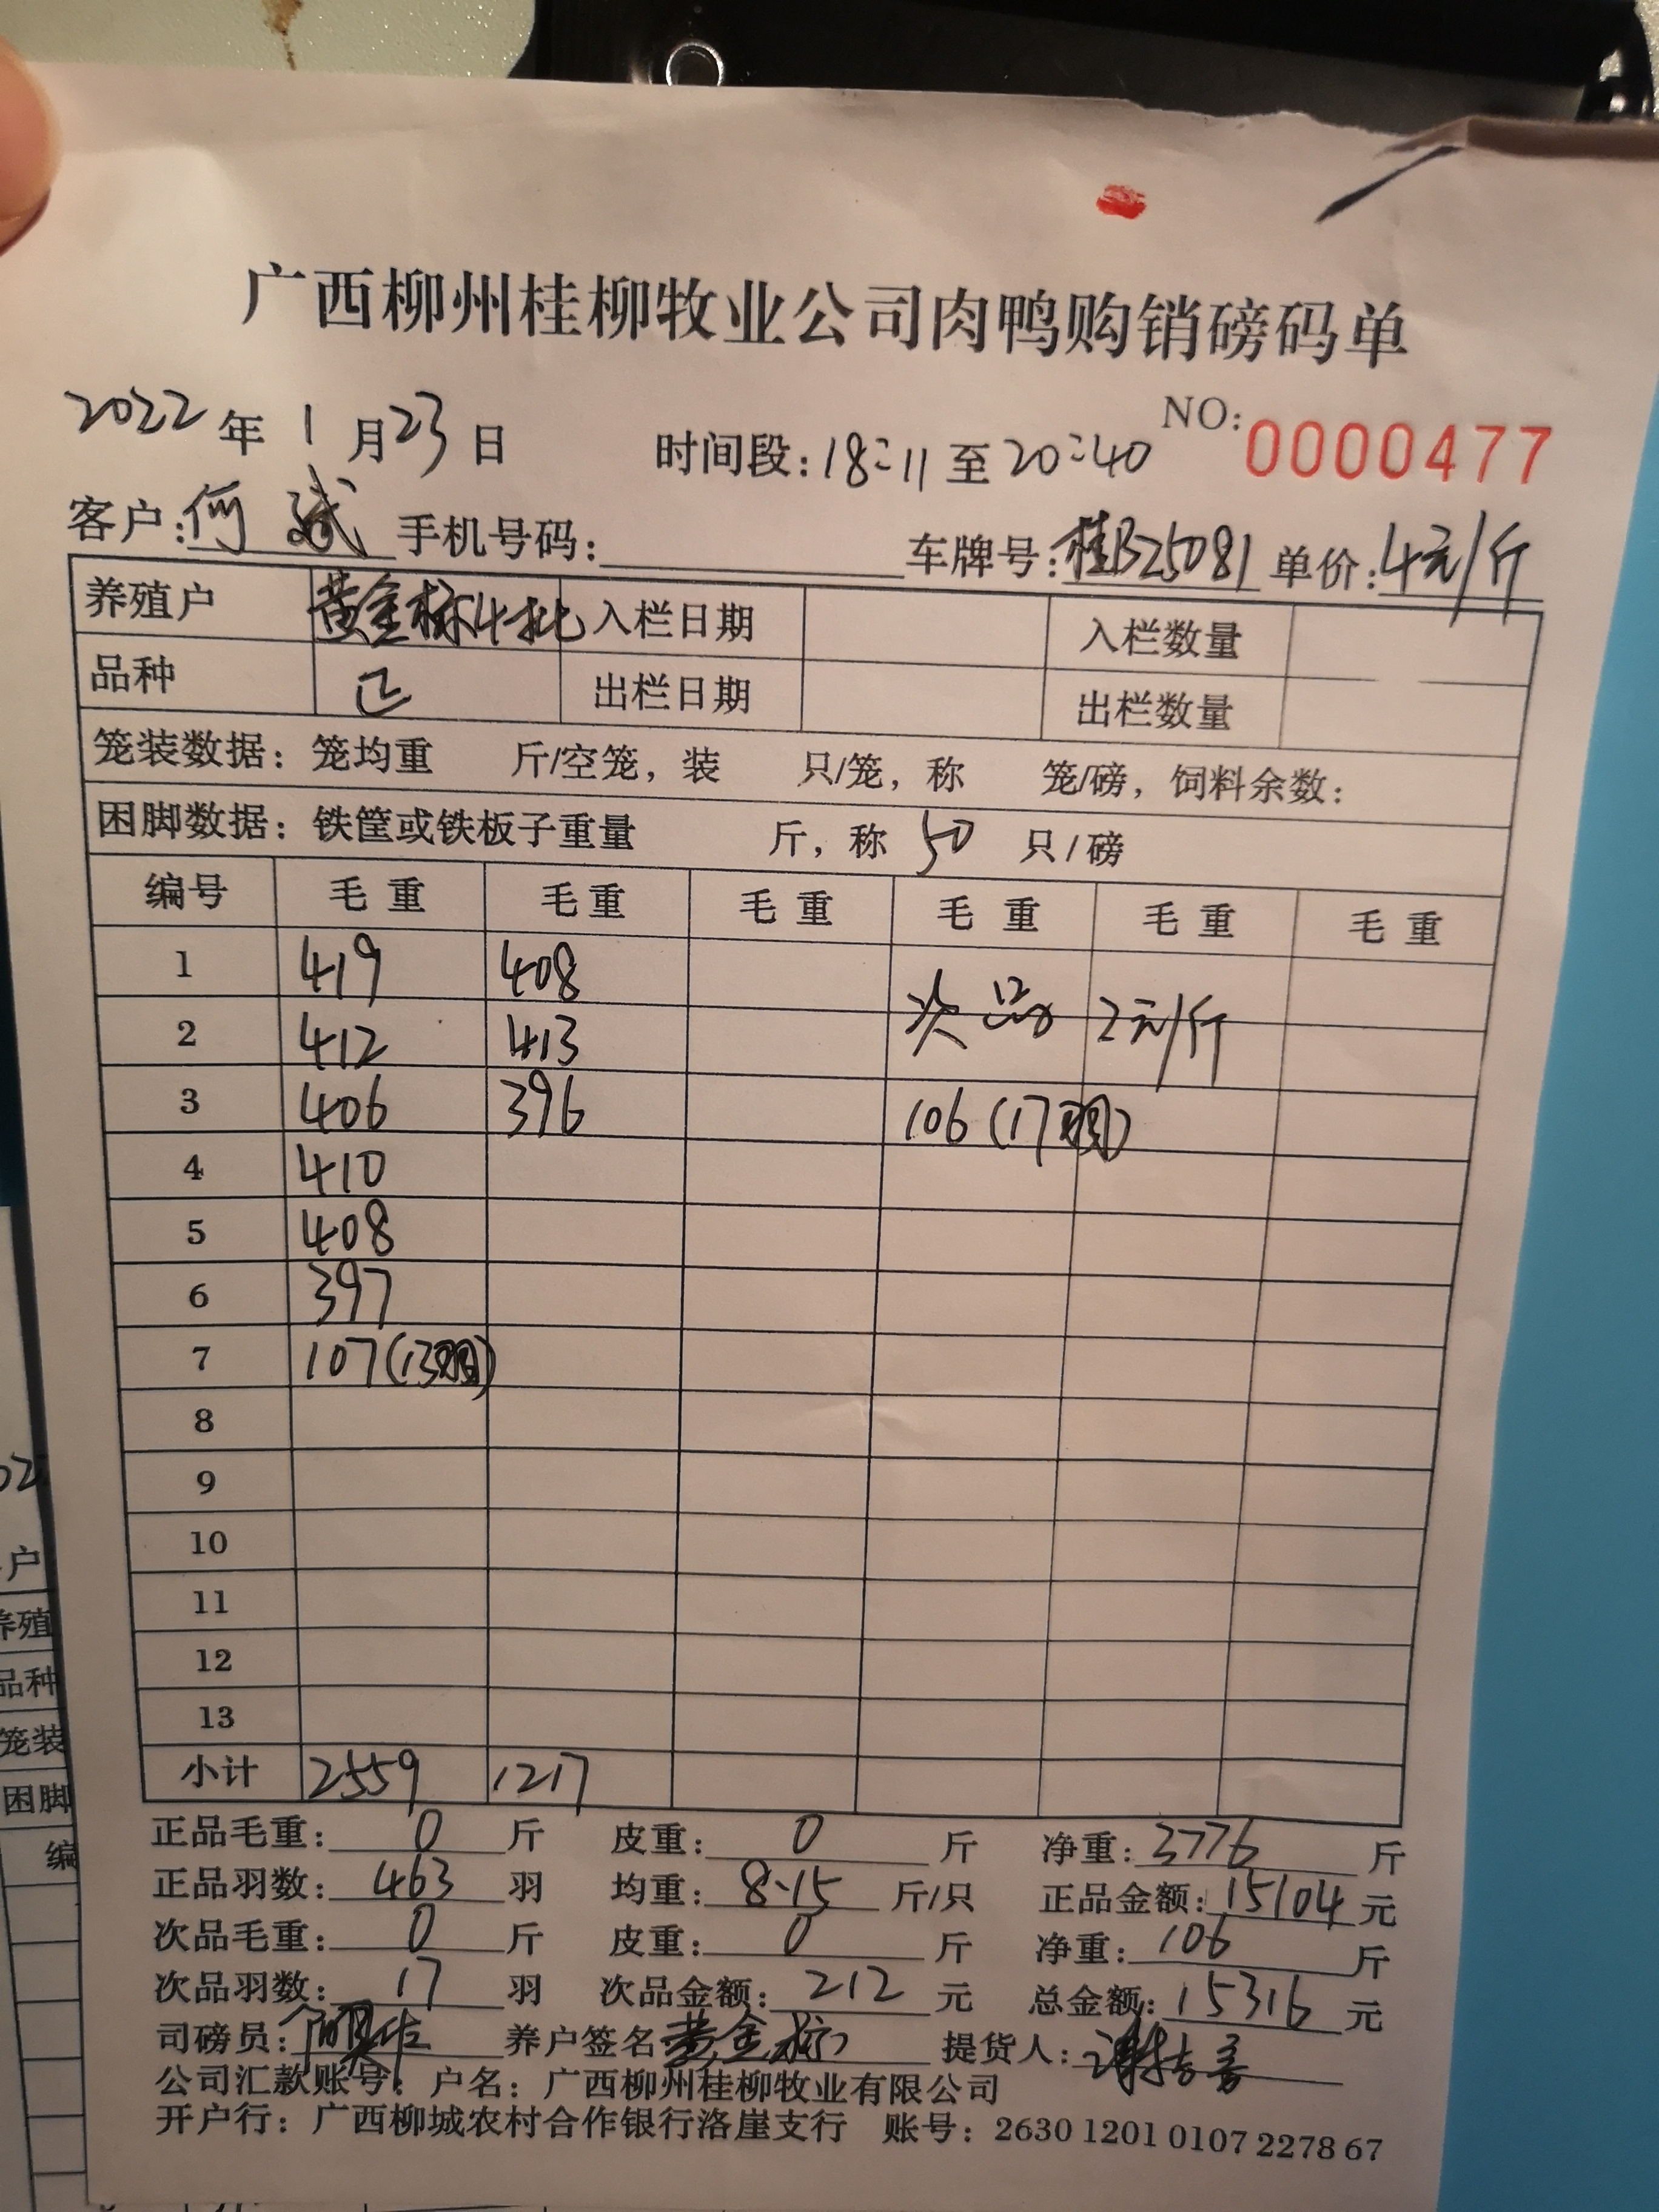 广西柳州桂柳牧业公司肉鸭购销磅码单
2022年1月23日 时间段:18:11至20:40 NO:0000477
客户:何斌 手机号码: 车牌号:桂B25081 单价:4元/斤
养殖户 黄金标4批 入栏日期 入栏数量
品种 出栏日期 出栏数量
笼装数据：笼均重 斤/空笼，装 只/笼，称 笼/磅，饲料余数：
困脚数据：铁筐或铁板子重量 斤，称 50 只/磅
编号 毛重 毛重 毛重 毛重 毛重 毛重
1 419 408
次品 2元/斤
2 412 413
3 406 396 106(17羽)
4 410
5 408
6 397
7 107(13羽)
8
9
10
11
12
13
小计 2559 1217
正品毛重:0斤 皮重:0斤 净重:3776斤
正品羽数:463羽 均重:8.15斤/只 正品金额:15104元
次品毛重:0斤 皮重:0斤 净重:106斤
次品羽数:17羽 次品金额:212元 总金额:15316元
司磅员: 养户签名 黄金标 提货人:
公司汇款账号：户名：广西柳州桂柳牧业有限公司
开户行：广西柳城农村合作银行洛崖支行 账号：2630 1201 0107 2278 67
户
养殖
品种
笼装
困脚
编